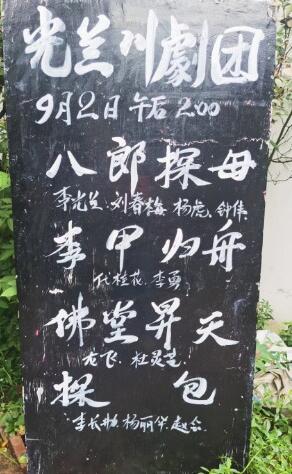 光兰川劇团
9月2日午后2:00
八郎探母
李光兰.刘春梅 杨虎.钟伟
李甲归舟
代桂花.李勇
佛堂昇天
龙飞.杜灵芝
探包
李长 杨丽华.赵